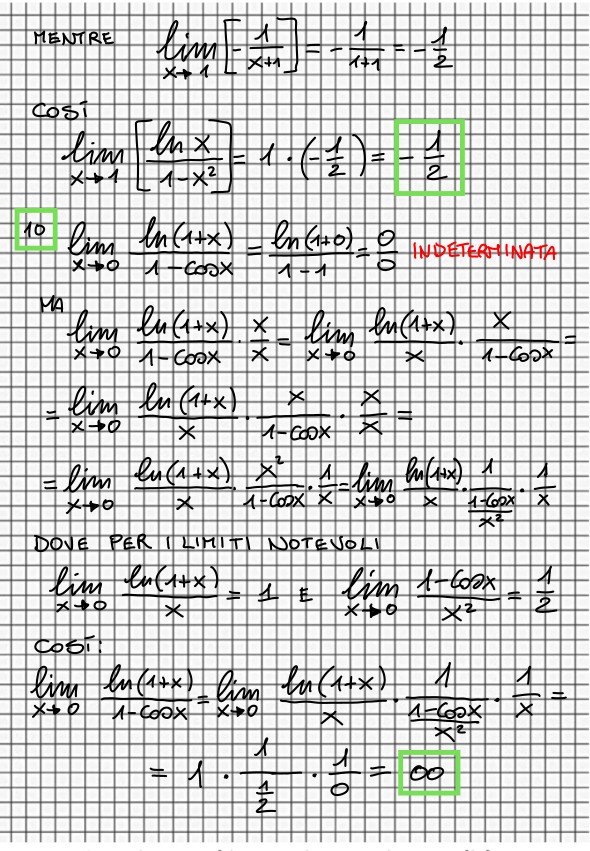 MENTRE lim x→1 [-1/(x+1)] = -1/(1+1) = -1/2
COSÌ
lim x→1 [ln x/(1-x²)] = 1 · (-1/2) = -1/2
10 lim x→0 ln(1+x)/(1-cosx) = ln(1+0)/(1-1) = 0/0 INDETERMINATA
MA
lim x→0 ln(1+x)/(1-cosx) · x/x = lim x→0 ln(1+x)/x · x/(1-cosx) =
= lim x→0 ln(1+x)/x · x/(1-cosx) · x/x =
= lim x→0 ln(1+x)/x · x²/(1-cosx) · 1/x = lim x→0 ln(1+x)/x · 1/((1-cosx)/x²) · 1/x
DOVE PER I LIMITI NOTEVOLI
lim x→0 ln(1+x)/x = 1 E lim x→0 (1-cosx)/x² = 1/2
COSÌ:
lim x→0 ln(1+x)/(1-cosx) = lim x→0 ln(1+x)/x · 1/((1-cosx)/x²) · 1/x =
= 1 · 1/(1/2) · 1/0 = ∞